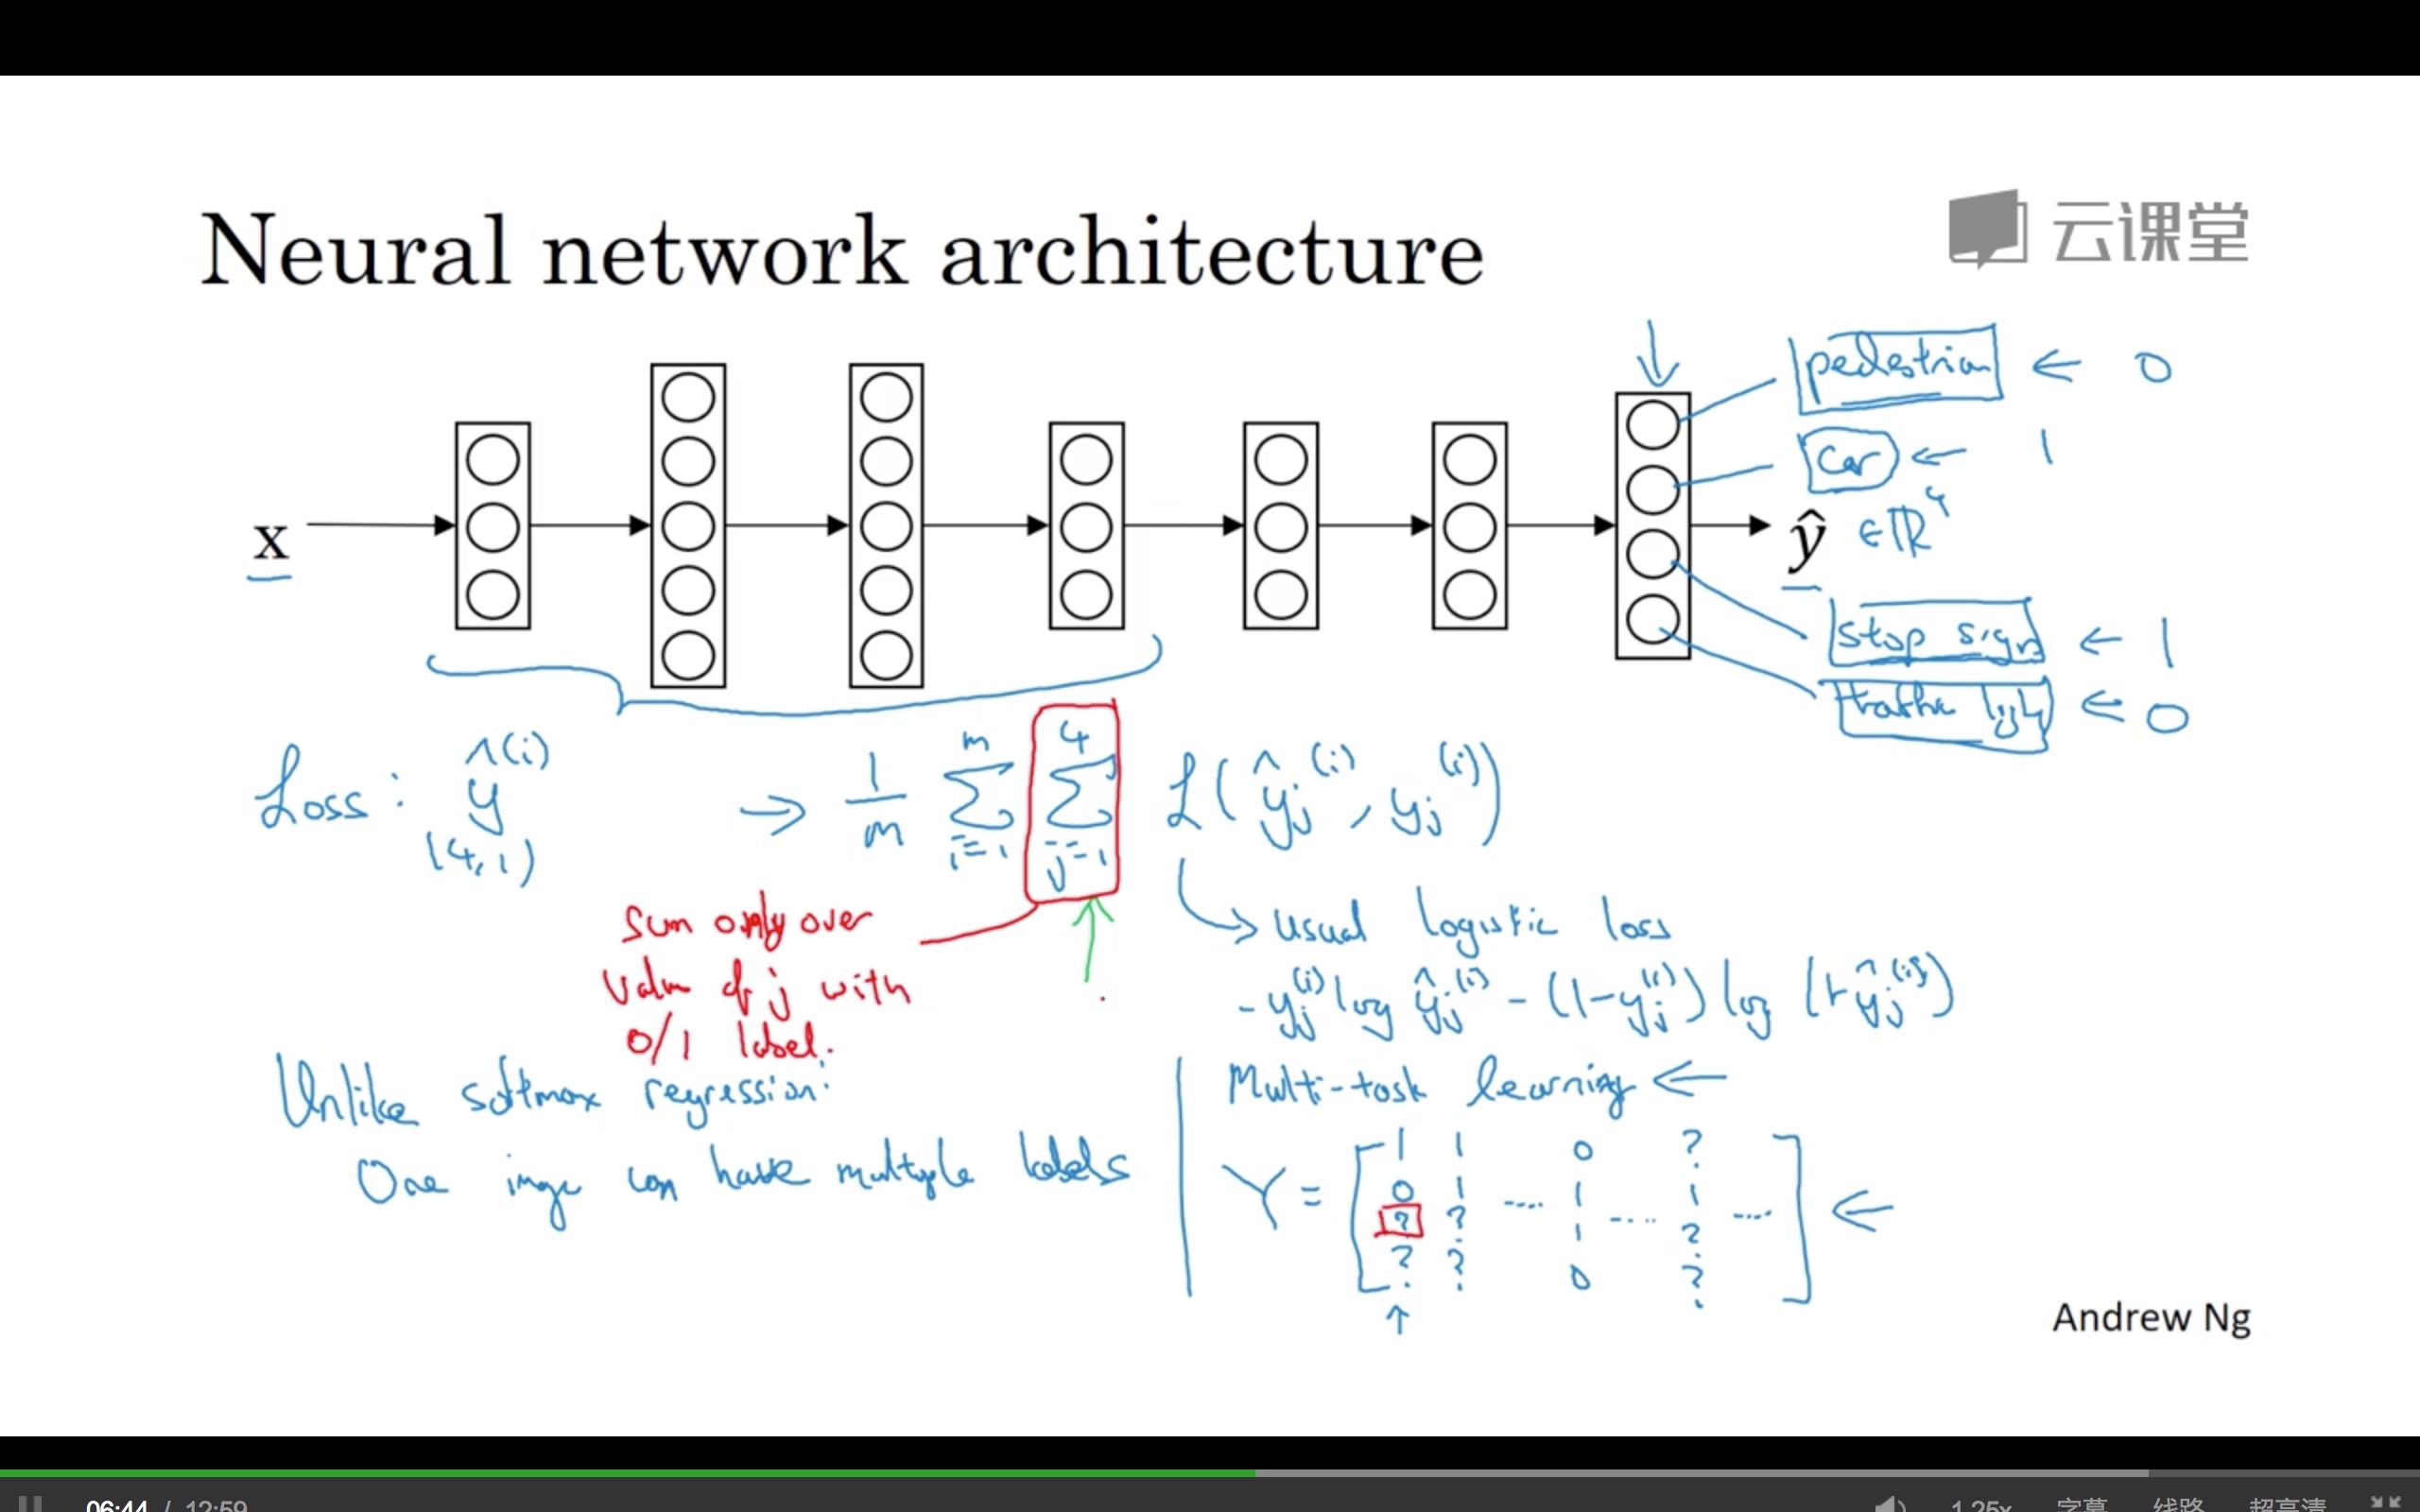 Neural network architecture
云课堂
pedestrian ← 0
car ← 1
x
ŷ ∈ ℝ⁴
stop sign ← 1
traffic light ← 0
Loss: ŷ^(i) ⇒ 1/m Σ_{i=1}^{m} Σ_{j=1}^{4} ℒ(ŷ_j^(i), y_j^(i))
(4,1)
Sum only over
value of j with
0/1 label.
→ usual logistic loss
- y_j^(i) log ŷ_j^(i) - (1-y_j^(i)) log (1-ŷ_j^(i))
Unlike softmax regression:
One image can have multiple labels
Multi-task learning ←
Y = [
1 1 0 ?
0 1 .... 1 1
? ? 1 .... ? ....
? ? 0 ?
] ←
Andrew Ng
06:44 / 12:59
1.25x 字幕 线路 超高清